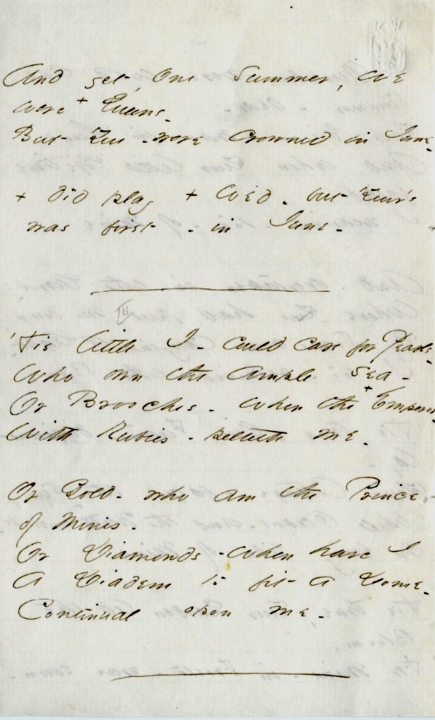 And yet, One Summer, we
were + Queens -
But You - were Crowned in June -
+ did play + Wed - but You's
was first - in June -
III
'Tis little I - could care for Pearls -
Who own the Ample Sea -
Or Brooches - when the + Emperor -
With Rubies - pelteth me -
Or Gold - who am the Prince
of Mines -
Or Diamonds - when have I
A Diadem to fit a Dome -
Continual upon me -